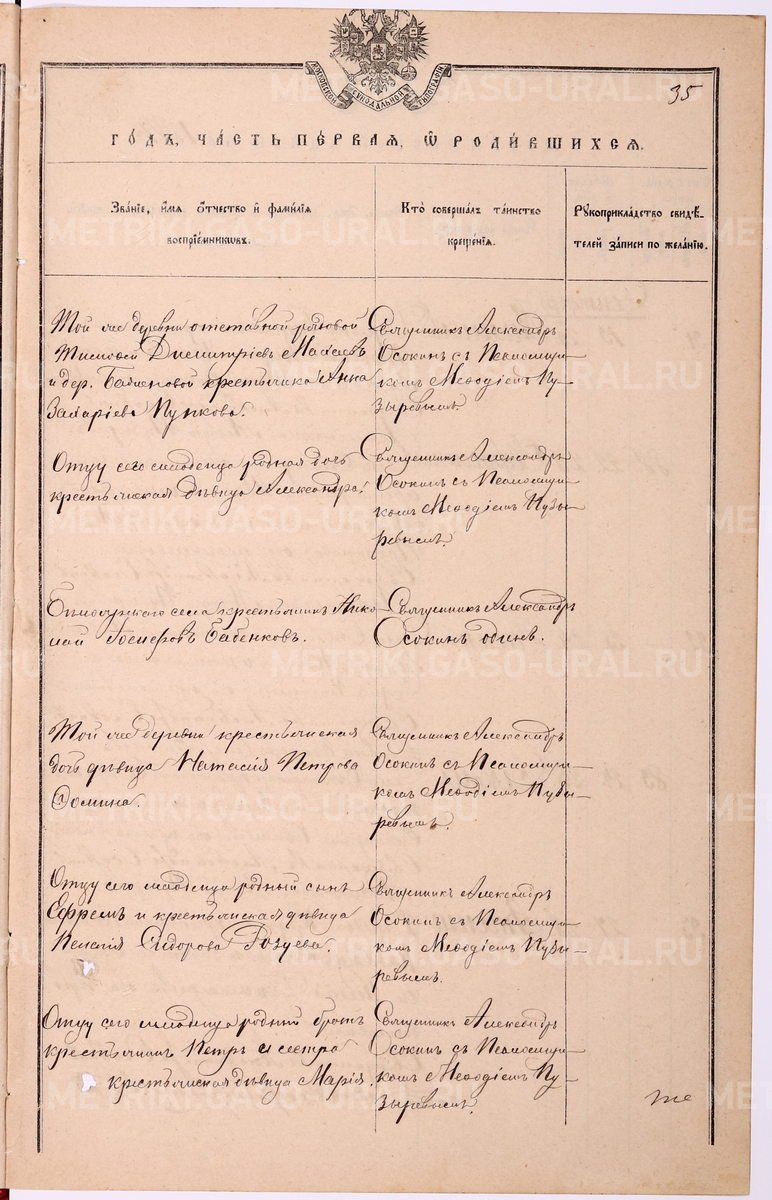 35
МОСКОВСКОЙ СѴНОДАЛЬНОЙ ТИПОГРАФІИ
ГОДЪ, ЧАСТЬ ПЕРВАЯ, Ѡ РОДИВШИХСЯ.
Званіе, имя отчество и фамилія
воспріемникѡвъ.
Кто совершалъ таинство
крещенія.
Рукоприкладство свидѣ-
телей записи по желанію.
Той же деревни отставной рядовой
Тимофей Димитріевъ
и дер. крестьянка Анна
Захаріева Пупкова.
Священникъ Александръ
Осокинъ съ Псаломщи-
комъ Меѳодіемъ Пу-
зыревымъ.
Отцу сего младенца родная дочь
крестьянская дѣвица Александра.
Священникъ Александръ
Осокинъ съ Псаломщи-
комъ Меѳодіемъ Пузы-
ревымъ.
села крестьянинъ Нико-
лай Іосифовъ Бабенковъ.
Священникъ Александръ
Осокинъ одинъ.
Той же деревни крестьянская
дочь дѣвица Наталія Петрова
Ѳомина.
Священникъ Александръ
Осокинъ съ Псаломщи-
комъ Меѳодіемъ Пузы-
ревымъ.
Отцу сего младенца родный сынъ
Ефремъ и крестьянская дѣвица
Сидорова
Священникъ Александръ
Осокинъ съ Псаломщи-
комъ Меѳодіемъ Пузы-
ревымъ.
Отцу сего младенца родный братъ
крестьянинъ Петръ и сестра
крестьянская дѣвица Марія.
Священникъ Александръ
Осокинъ съ Псаломщи-
комъ Меѳодіемъ Пу-
зыревымъ.
METRIKI.GASO-URAL.RU